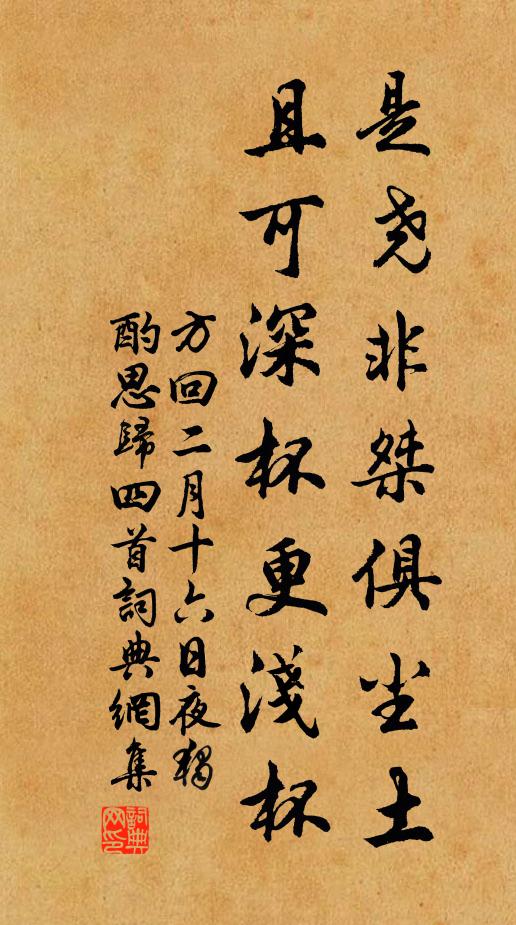 是尧非桀俱尘土
且可深杯更淺杯
方回二月十六日夜獨
酌思歸四首詞典網集
詞典网印